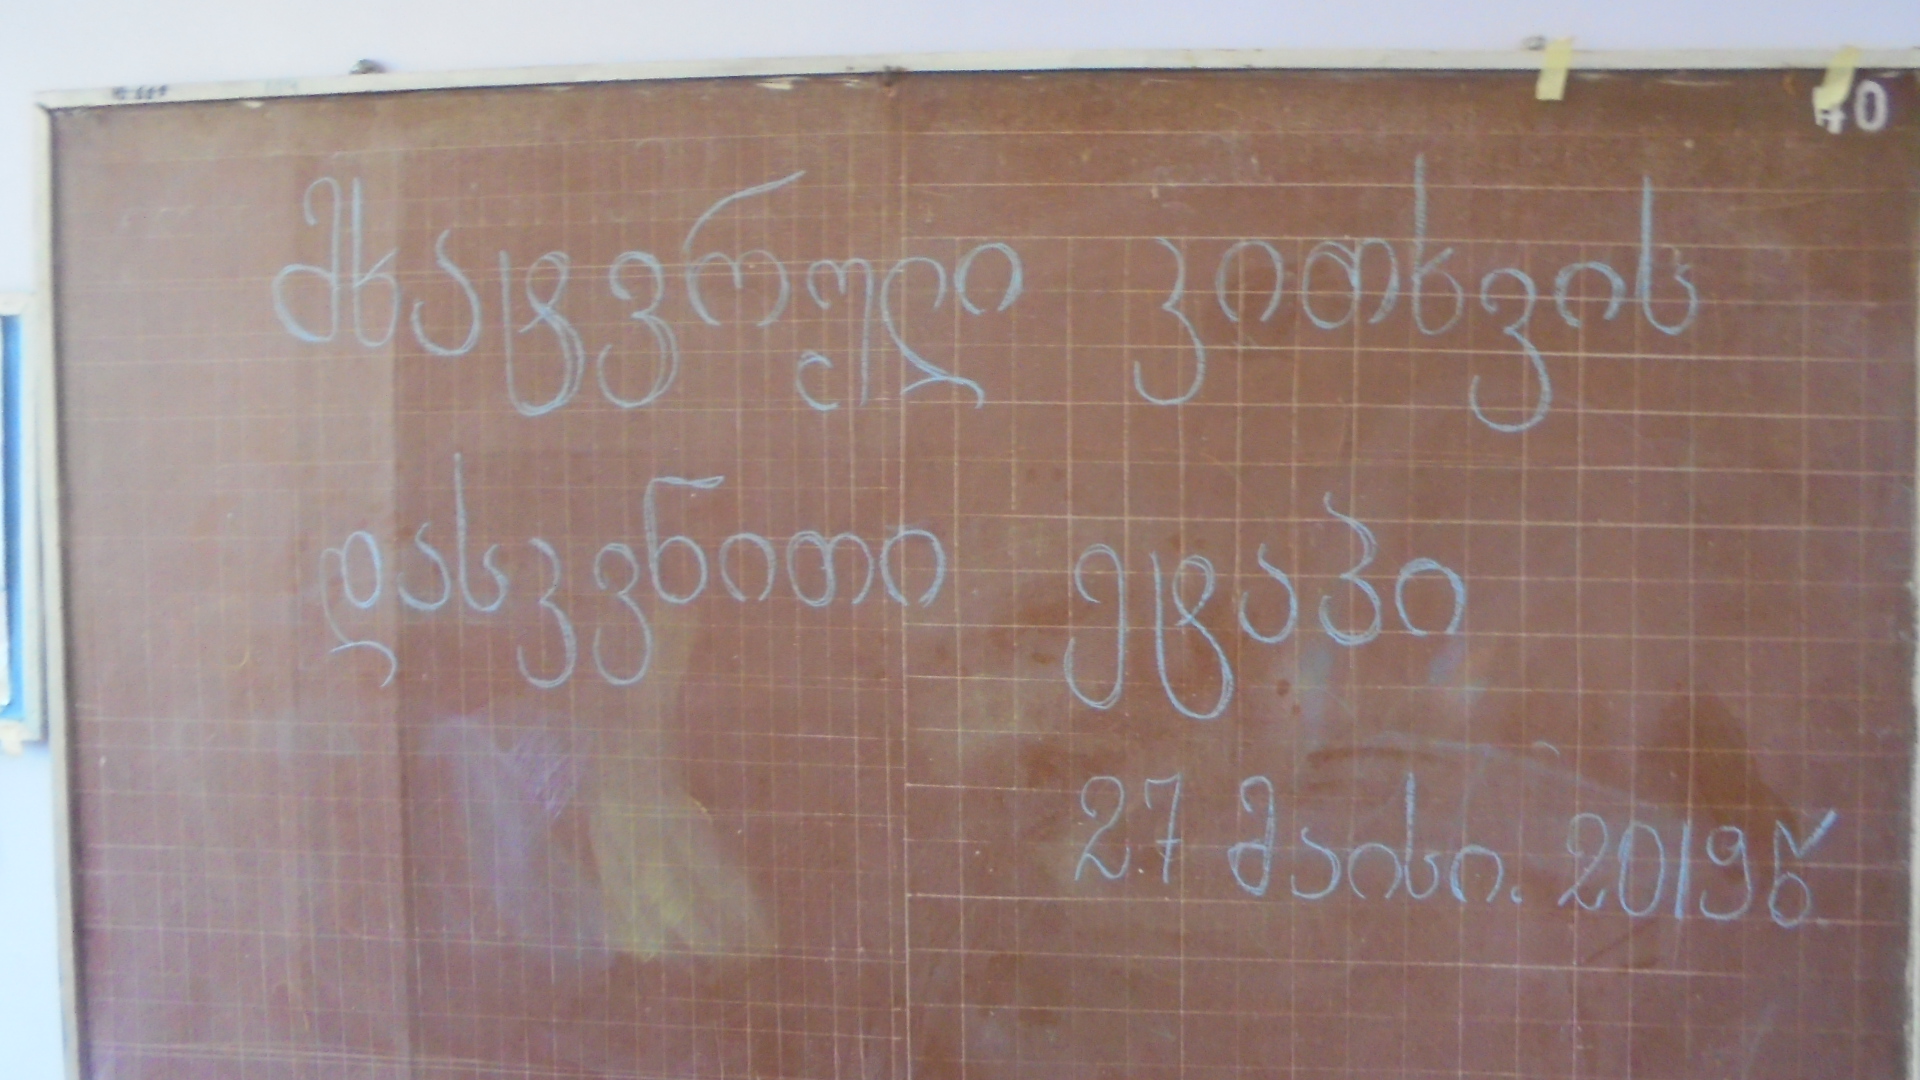 40
მხატვრული კითხვის
დასკვნითი ეტაპი
27 მაისი. 2019წ.